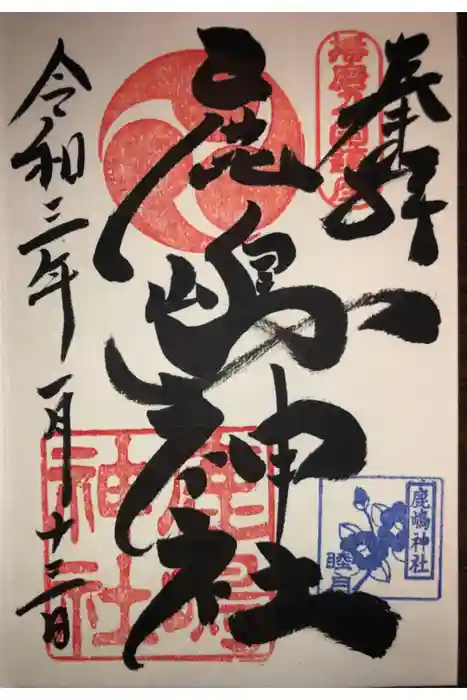 奉拝
鹿嶋神社
令和三年一月十三日
鹿嶋
神社
鹿嶋神社
睦月